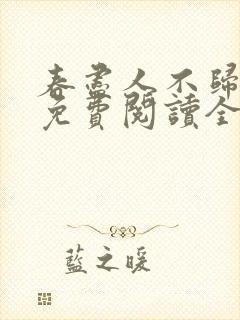 春盡人不歸
免費閱讀全
藍之暖